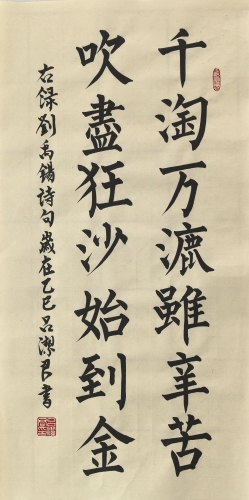 千淘万漉雖辛苦
吹盡狂沙始到金
右録劉禹錫詩句歲在乙巳呂潔君書